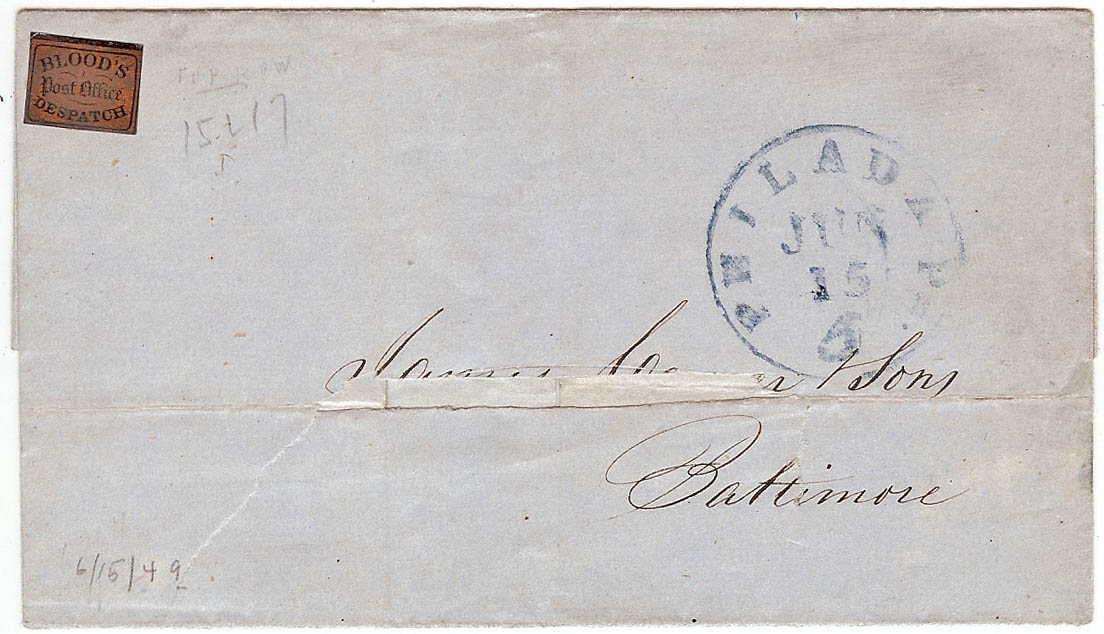 BLOOD'S
Post Office
DESPATCH
TOP ROW
15L17
PHILADA. Pa.
JUN
15
5
& Sons
Baltimore
6/15/49